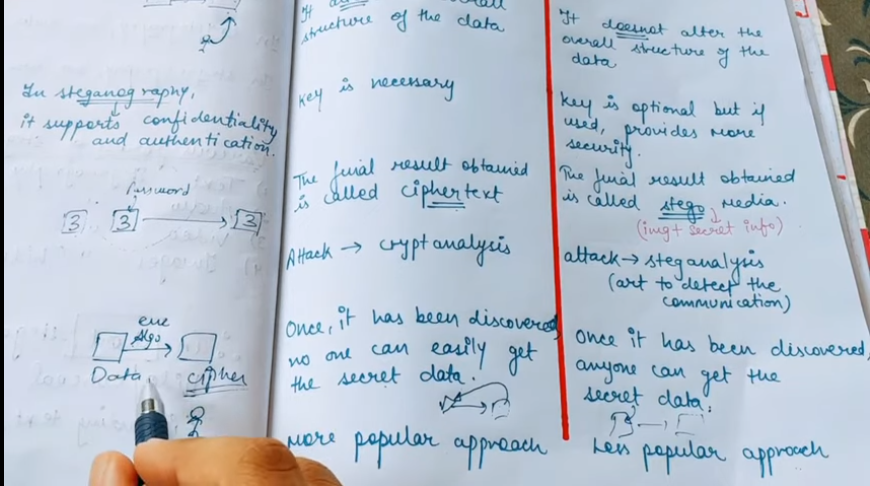 In steganography,
it supports confidentiality
and authentication.
Password
3
3
3
enc
Algo
Data
cipher
structure of the data
Key is necessary
The final result obtained
is called ciphertext
Attack → cryptanalysis
Once, it has been discovered,
no one can easily get
the secret data.
More popular approach
It doesnot alter the
overall structure of the
data
Key is optional but if
used, provides more
security.
The final result obtained
is called stego media.
(img+ secret info)
attack → steganalysis
(art to detect the
communication)
Once it has been discovered,
anyone can get the
secret data.
Less popular approach